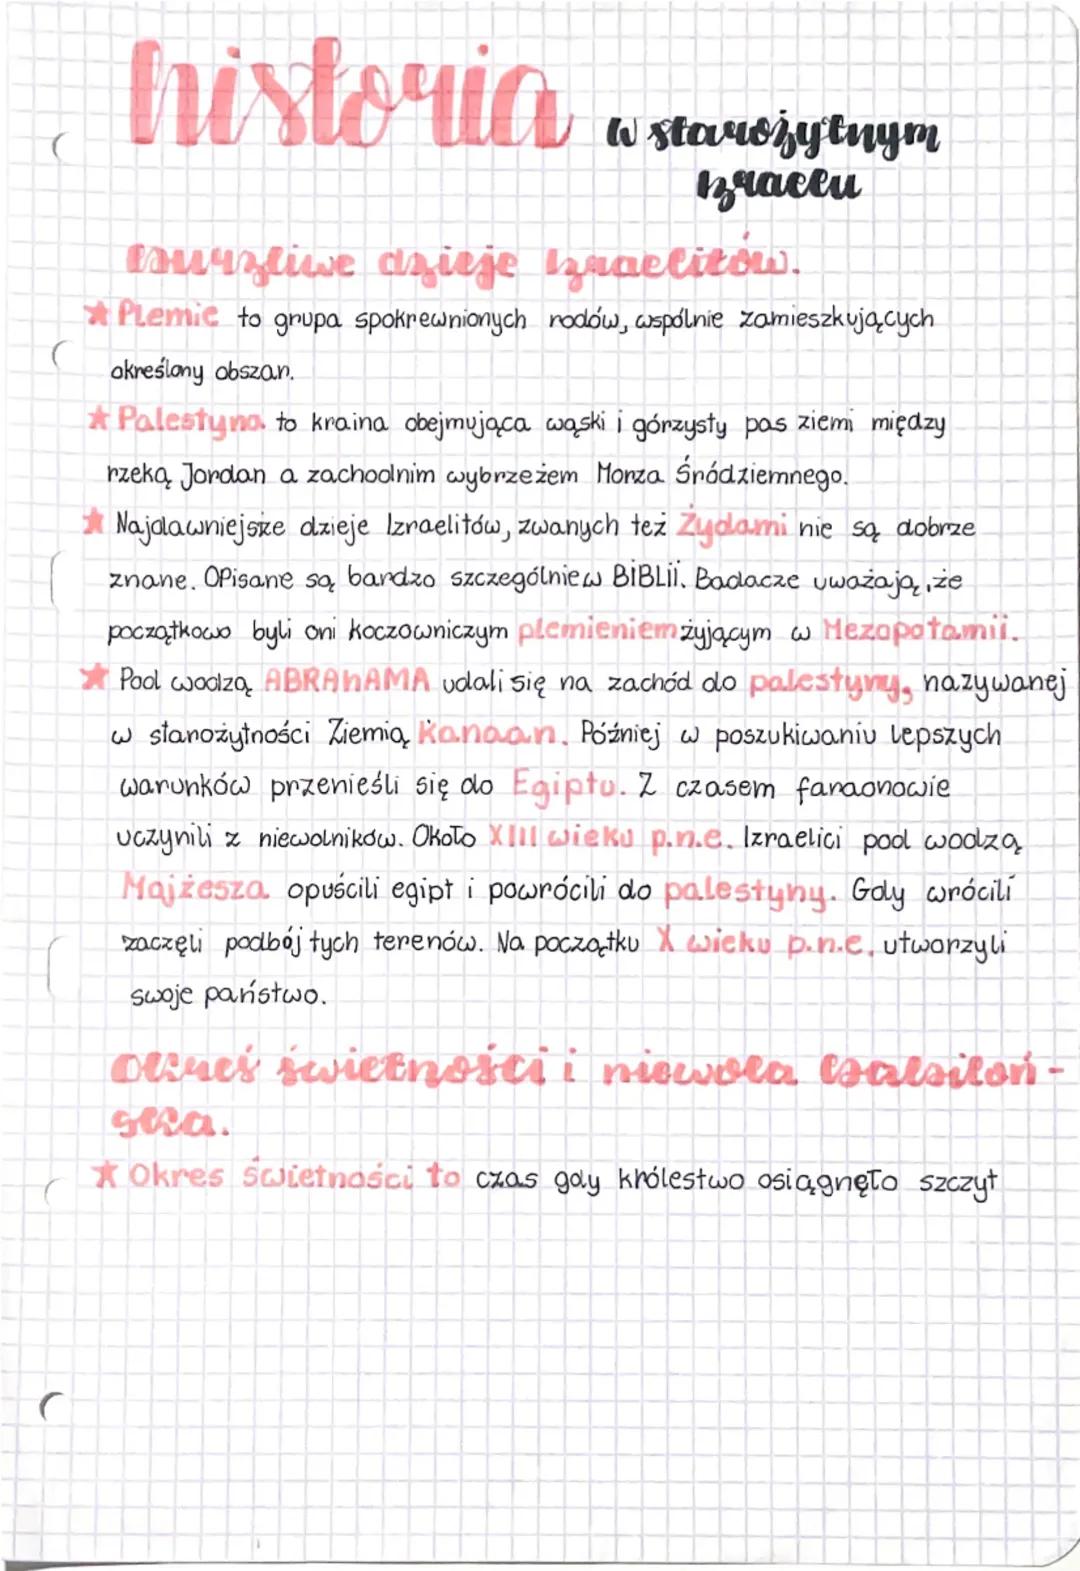 historia
w starożytnym
Izraelu
Burzliwe dzieje Izraelitów.
★ Plemie to grupa spokrewnionych rodów, wspólnie zamieszkujących
określony obszar.
★ Palestyna to kraina obejmująca wąski i górzysty pas ziemi między
rzeką Jordan a zachodnim wybrzeżem Morza Śródziemnego.
★ Najdawniejsze dzieje Izraelitów, zwanych też Żydami nie są dobrze
znane. OPisane są bardzo szczególnie w BiBLii. Badacze uważają, że
początkowo byli oni koczowniczym plemieniem żyjącym w Mezopotamii.
★ Pod wodzą ABRAhAMA udali się na zachód do palestyny, nazywanej
w starożytności Ziemią Kanaan. Później w poszukiwaniu lepszych
warunków przenieśli się do Egiptu. Z czasem faraonowie
uczynili z niewolników. Około XIII wieku p.n.e. Izraelici pod wodzą
Majżesza opuścili egipt i powrócili do palestyny. Gdy wrócili
zaczęli podbój tych terenów. Na początku X wieku p.n.e. utworzyli
swoje państwo.
Okres świetności i niewola babiloń-
ska.
★ Okres świetności to czas gdy królestwo osiągnęło szczyt